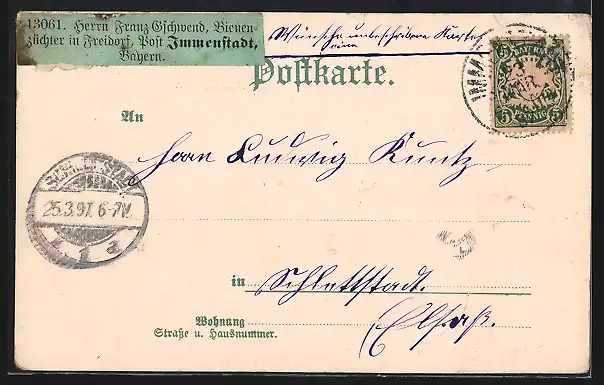 13061. Herrn Franz Gschwend, Bienen-
züchter in Freidorf, Post Immenstadt,
Bayern.
Wünsche unbeschriebene Karte
Postkarte.
BAYERN
5 PFENNIG 5
An
Herrn Ludwig Kuntz
SCHLETTSTADT
25.3.97. 6-7N.
1 a
in Schlettstadt.
Elsaß.
Wohnung
Straße u. Hausnummer.